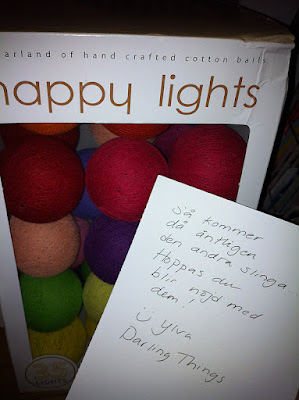 garland of hand crafted cotton balls
happy lights
Så kommer
då äntligen
den andra slingan.
Hoppas du
blir nöjd med
dem!
Ylva
Darling Things
35
LIGHTS